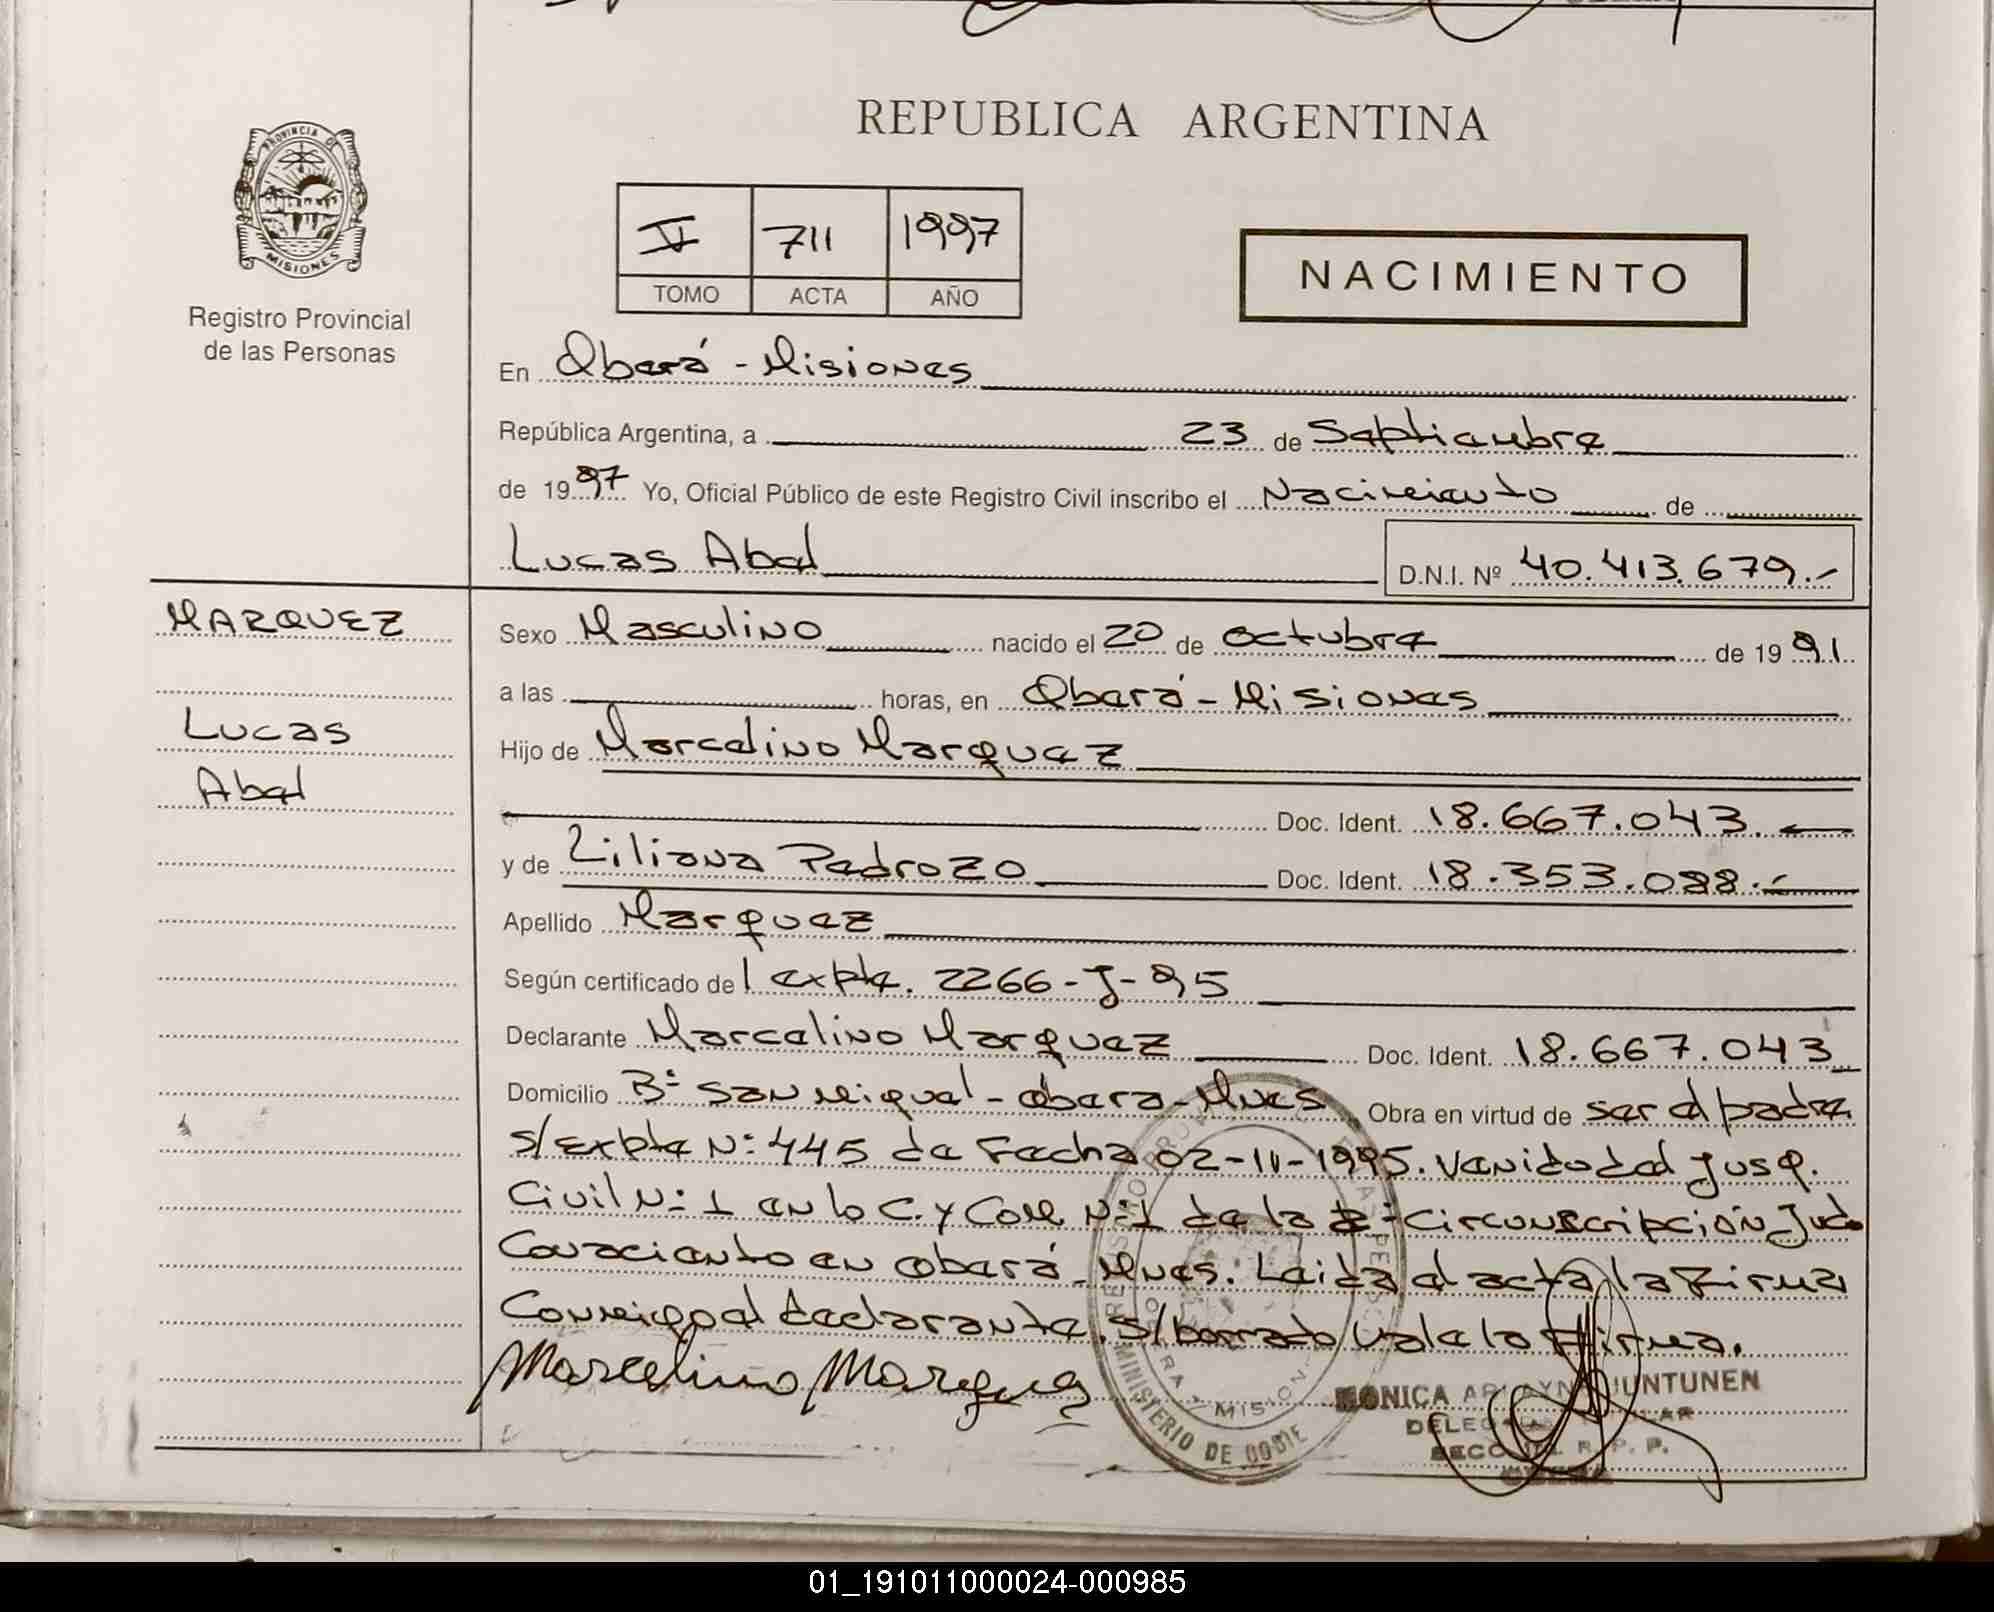 REPUBLICA ARGENTINA
PROVINCIA DE MISIONES
Registro Provincial
de las Personas
V 711 1997
TOMO ACTA AÑO
NACIMIENTO
En Oberá - Misiones
República Argentina, a 23 de Septiembre
de 1997 Yo, Oficial Público de este Registro Civil inscribo el Nacimiento de
Lucas Abel D.N.I. Nº 40.413.679.-
MARQUEZ
Lucas
Abel
Sexo Masculino nacido el 20 de octubre de 1991
a las horas, en Oberá - Misiones
Hijo de Marcelino Marquez
Doc. Ident. 18.667.043.-
y de Liliana Pedrozo Doc. Ident. 18.353.088.-
Apellido Marquez
Según certificado de l expte. 2266-J-95
Declarante Marcelino Marquez Doc. Ident. 18.667.043
Domicilio Bº San Miguel - Oberá - Mnes Obra en virtud de ser el padre
s/Expte Nº 445 de Fecha 02-11-1995. venido del Jusg.
Civil Nº 1 en lo C. y Com. Nº 1 de la 2º circunscripción Jud.
Con aciento en Oberá - Mnes. Leida el acta la Firma
Conmigo el declarante. s/borrado vale lo Firma.
Marcelino Marquez
MINISTERIO DE GOBIE
MONICA JUNTUNEN
R. P. P.
01_191011000024-000985